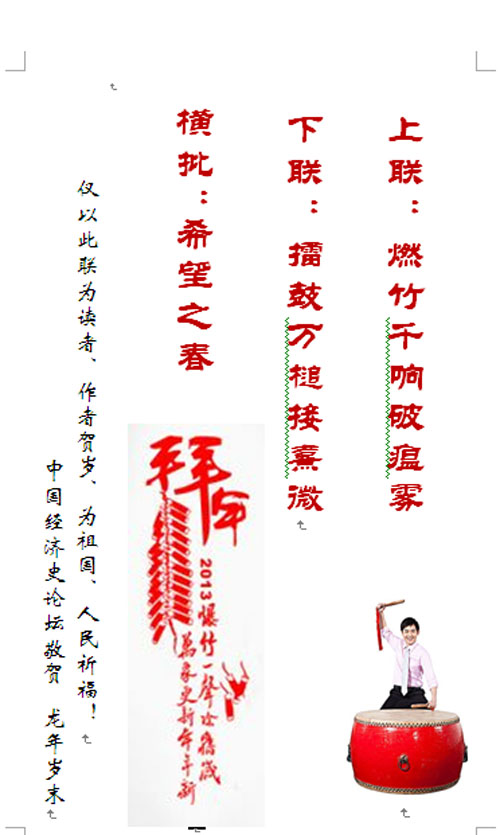 上联：燃竹千响破瘟雾
下联：擂鼓万槌接熹微
横批：希望之春
拜年
2013爆竹一聲除舊歲
萬象更新年年新
仅以此联为读者、作者贺岁、为祖国、人民祈福！
中国经济史论坛敬贺 龙年岁末